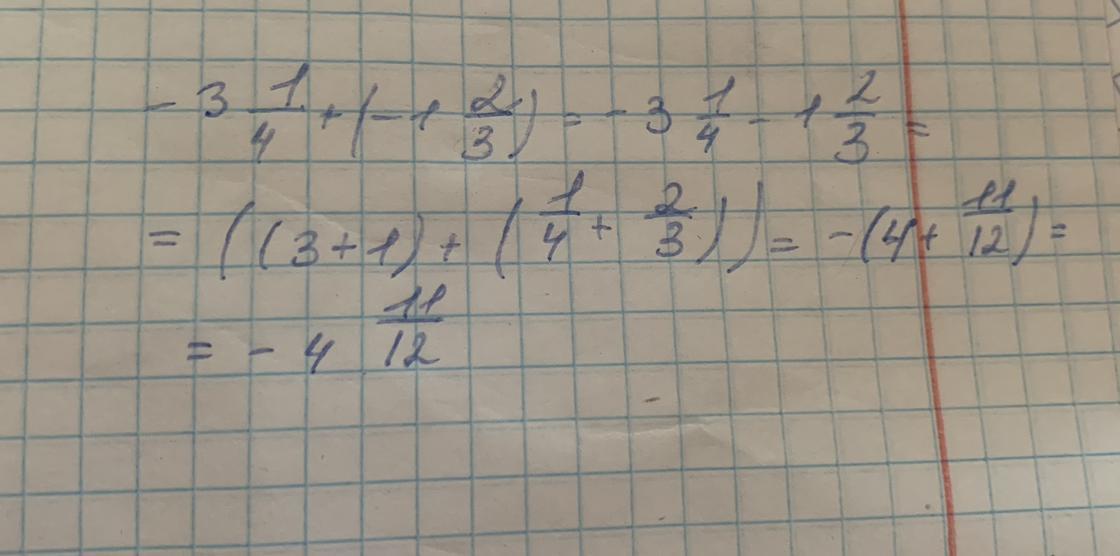 - 3 1/4 + (-1 2/3) = - 3 1/4 - 1 2/3 =
= ((3+1) + (1/4 + 2/3)) = -(4 + 11/12) =
= - 4 11/12